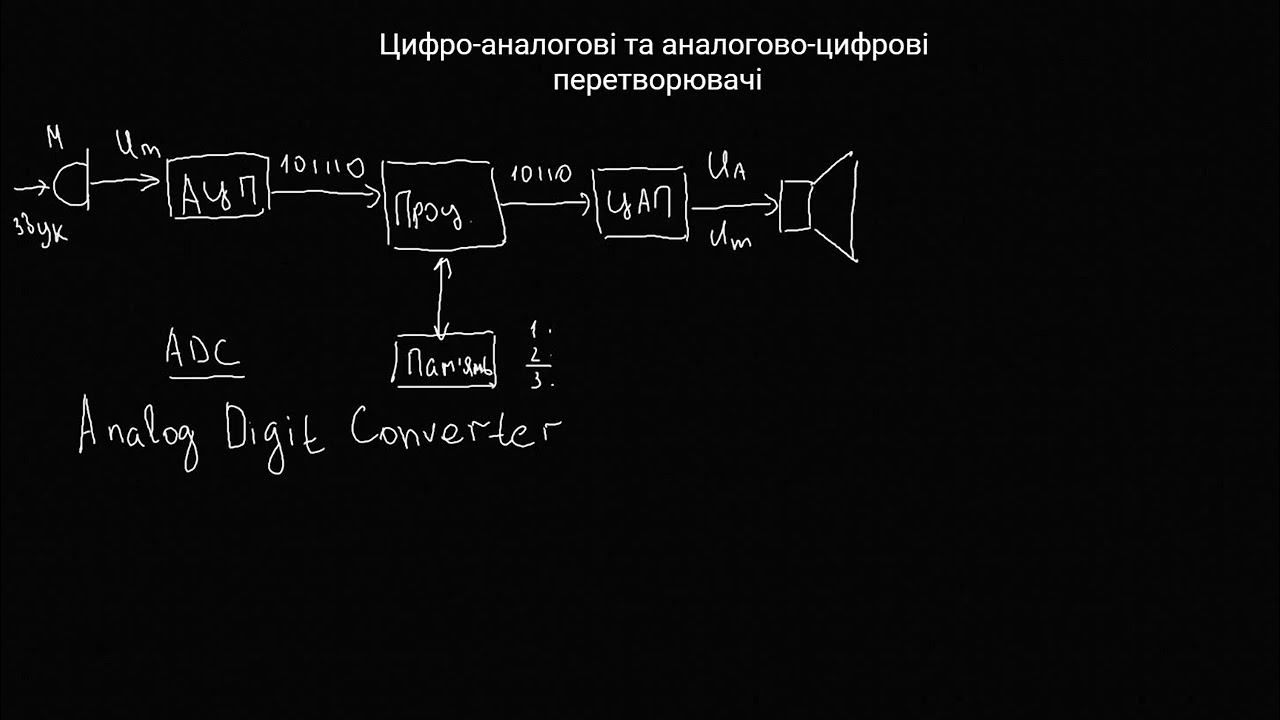 Цифро-аналогові та аналогово-цифрові
перетворювачі
М
Um
101110
10110
UA
звук
АЦП
Проц.
ЦАП
Um
ADC
Пам'ять
1.
2.
3.
Analog Digit Converter